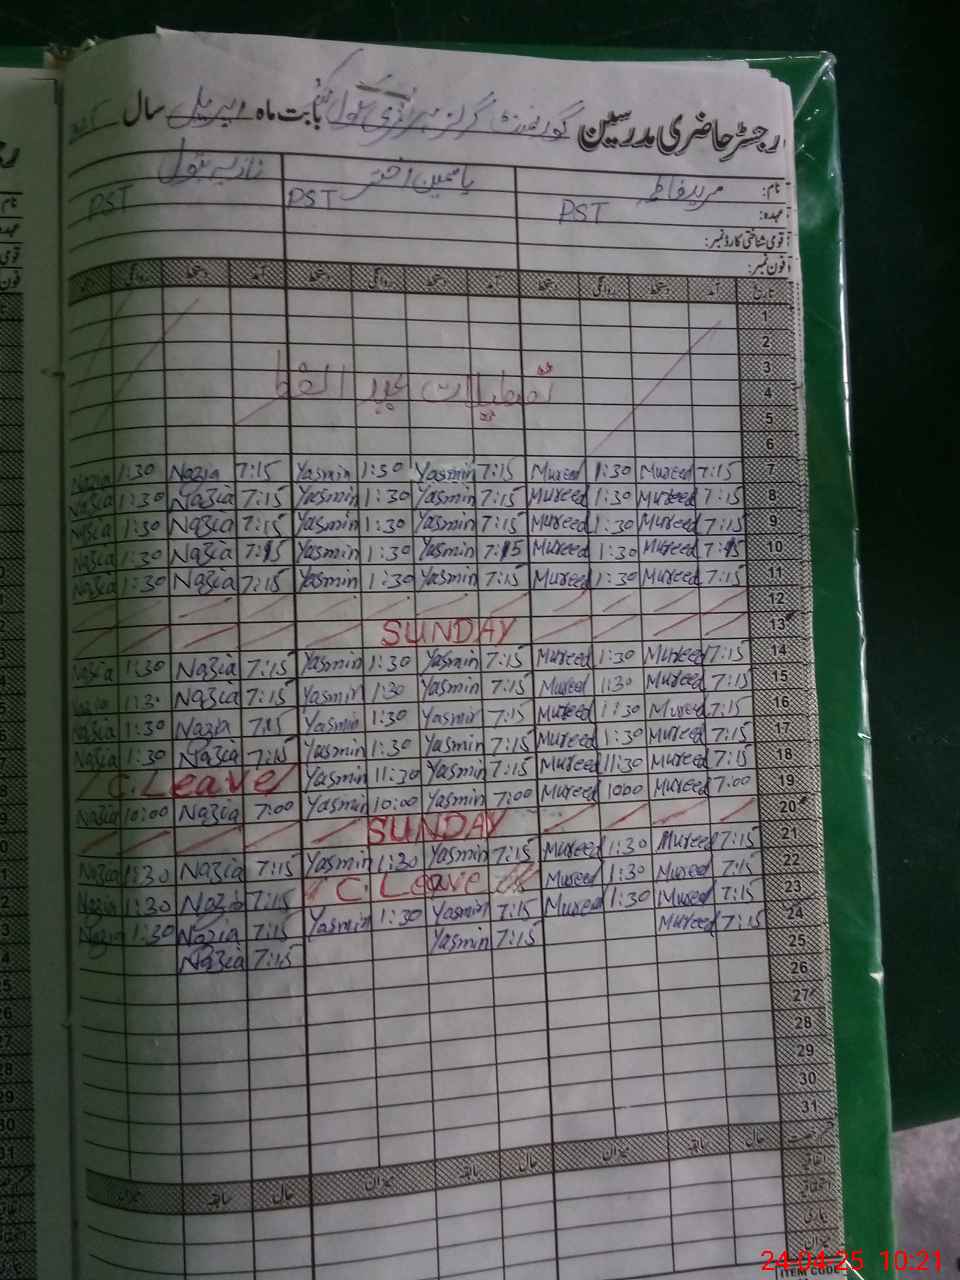 رجسٹر حاضری مدرسین گورنمنٹ گرلز پرائمری سکول بابت ماہ اپریل سال
نام: مرید فاطمہ یاسمین اختر نازیہ بتول
عہدہ: PST PST PST
قومی شناختی کارڈ نمبر:
فون نمبر:
تاریخ آمد دستخط روانگی دستخط آمد دستخط روانگی دستخط آمد دستخط روانگی دستخط
1
2
3
تعطیلات عید الفطر
4
5
6
7 7:15 Mureed 1:30 Mureed 7:15 Yasmin 1:30 Yasmin 7:15 Nazia 1:30 Nazia
8 7:15 Mureed 1:30 Mureed 7:15 Yasmin 1:30 Yasmin 7:15 Nazia 1:30 Nazia
9 7:15 Mureed 1:30 Mureed 7:15 Yasmin 1:30 Yasmin 7:15 Nazia 1:30 Nazia
10 7:15 Mureed 1:30 Mureed 7:15 Yasmin 1:30 Yasmin 7:15 Nazia 1:30 Nazia
11 7:15 Mureed 1:30 Mureed 7:15 Yasmin 1:30 Yasmin 7:15 Nazia 1:30 Nazia
12
13 SUNDAY
14 7:15 Mureed 1:30 Mureed 7:15 Yasmin 1:30 Yasmin 7:15 Nazia 1:30 Nazia
15 7:15 Mureed 1:30 Mureed 7:15 Yasmin 1:30 Yasmin 7:15 Nazia 1:30 Nazia
16 7:15 Mureed 1:30 Mureed 7:15 Yasmin 1:30 Yasmin 7:15 Nazia 1:30 Nazia
17 7:15 Mureed 1:30 Mureed 7:15 Yasmin 1:30 Yasmin 7:15 Nazia 1:30 Nazia
18 7:15 Mureed 11:30 Mureed 7:15 Yasmin 11:30 Yasmin C.Leave
19 7:00 Mureed 1000 Mureed 7:00 Yasmin 10:00 Yasmin 7:00 Nazia 10:00 Nazia
20 SUNDAY
21 7:15 Mureed 1:30 Mureed 7:15 Yasmin 1:30 Yasmin 7:15 Nazia 1:30 Nazia
22 7:15 Mureed 1:30 Mureed C. Leave 7:15 Nazia 1:30 Nazia
23 7:15 Mureed 1:30 Mureed 7:15 Yasmin 1:30 Yasmin 7:15 Nazia 1:30 Nazia
24 7:15 Mureed 7:15 Yasmin 7:15 Nazia
25
26
27
28
29
30
31
حال سابقہ میزان حال سابقہ میزان حال سابقہ میزان
24.04.25 10:21
ITEM CODE